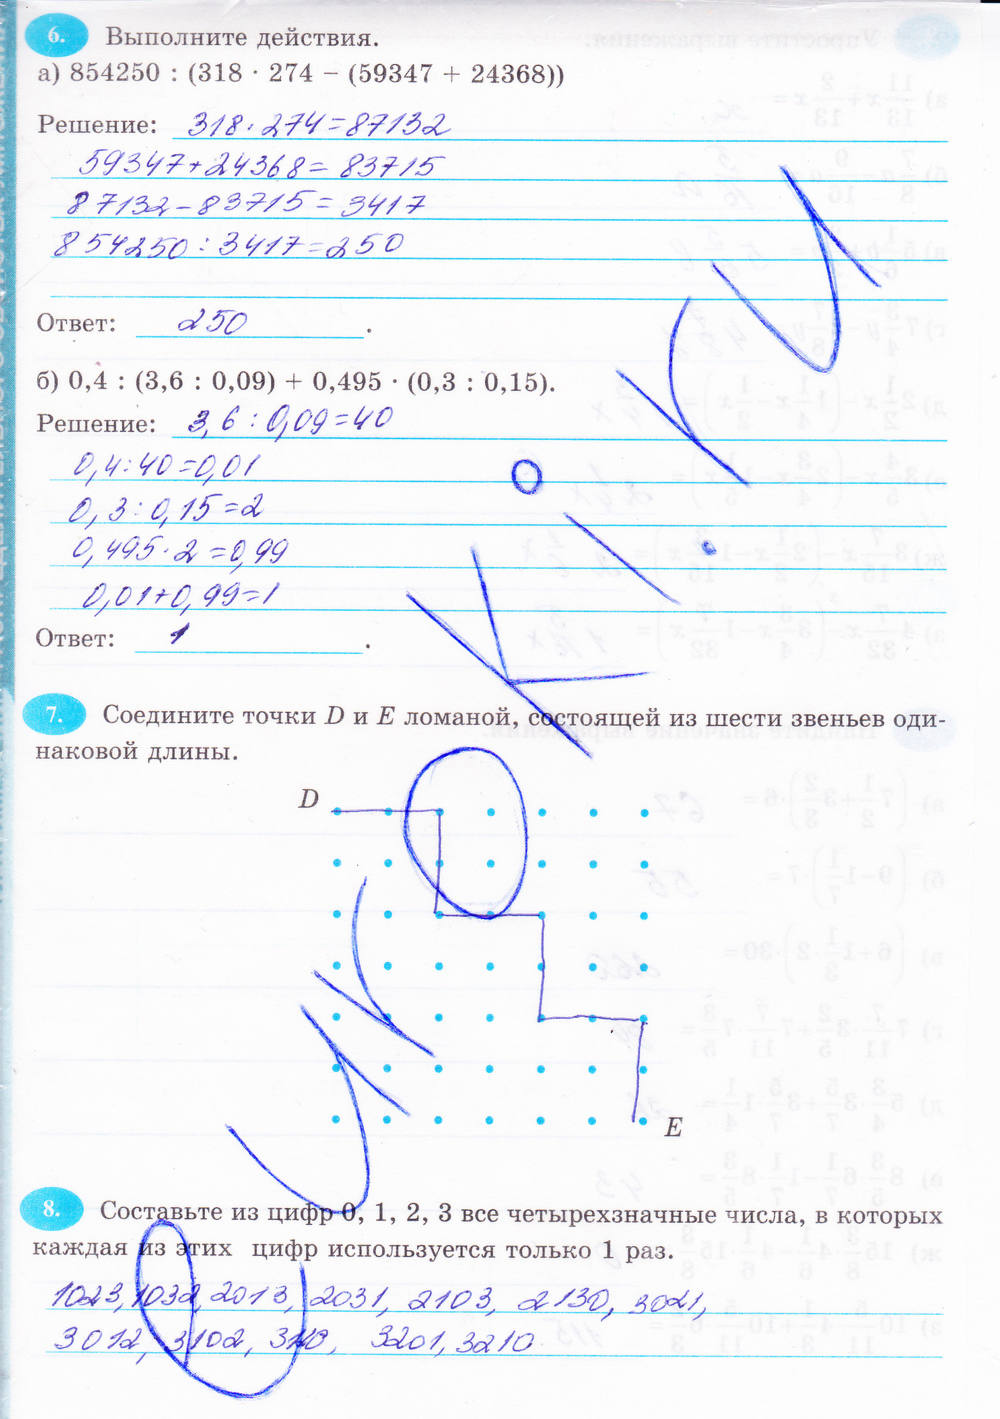 6. Выполните действия.
а) 854250 : (318 · 274 – (59347 + 24368))
Решение: 318·274=87132
59347+24368=83715
87132-83715=3417
854250:3417=250
Ответ: 250.
б) 0,4 : (3,6 : 0,09) + 0,495 · (0,3 : 0,15).
Решение: 3,6:0,09=40
0,4:40=0,01
0,3:0,15=2
0,495·2=0,99
0,01+0,99=1
Ответ: 1.
7. Соедините точки D и E ломаной, состоящей из шести звеньев оди-
наковой длины.
D
E
8. Составьте из цифр 0, 1, 2, 3 все четырехзначные числа, в которых
каждая из этих цифр используется только 1 раз.
1023, 1032, 2013, 2031, 2103, 2130, 3021,
3012, 3102, 3120, 3201, 3210